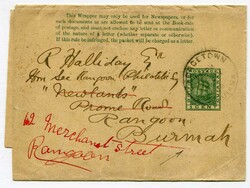 This Wrapper may only be used for Newspapers, or for
such documents as are allowed to be sent at the Book-rate of
postage, and must not enclose any letter or communication
of the nature of a letter (whether separate or otherwise).
If this rule be infringed, the packet will be charged as a letter.
R. Halliday Esqr
Hon Sec Rangoon Philatelic
"Newlands"
Prome Road
Rangoon
Burmah
62 Merchant Street
Rangoon